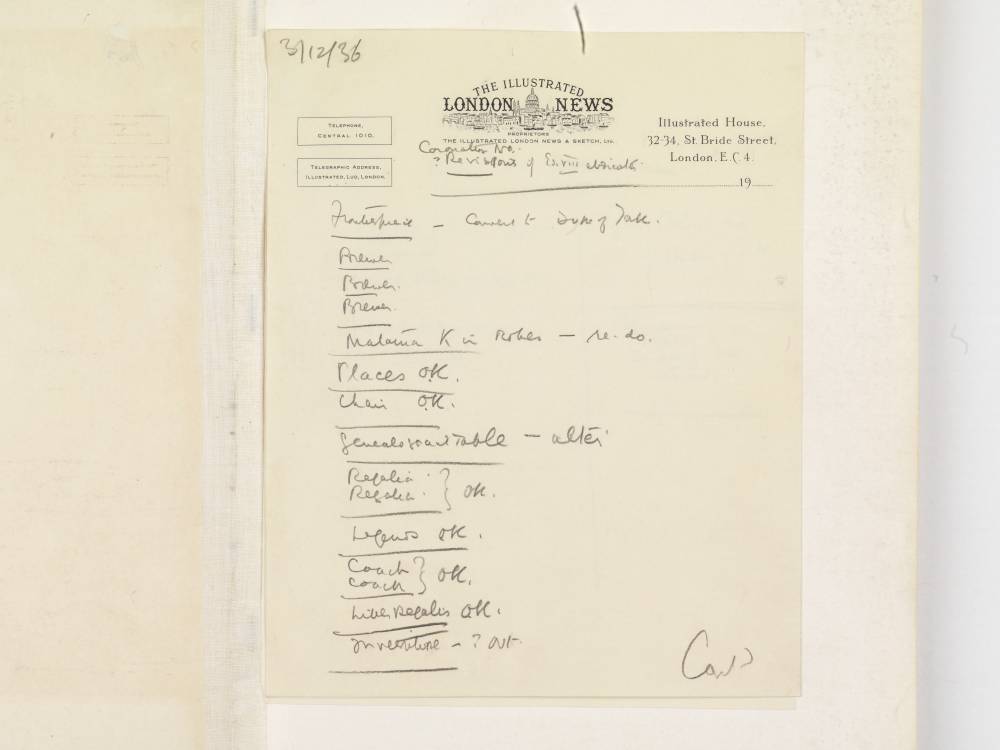 3/12/36
THE ILLUSTRATED
LONDON NEWS
PROPRIETORS
THE ILLUSTRATED LONDON NEWS & SKETCH, LTD.
TELEPHONE,
CENTRAL 1010.
TELEGRAPHIC ADDRESS,
ILLUSTRATED, LUD, LONDON.
Illustrated House,
32-34, St. Bride Street,
London, E.C.4.
19
Coronation No.
? Revisions of Ed. VIII abdicates
Frontispiece – Convert to Duke of York.
Brewer
Brewer.
Brewer.
Matania K in Robes – re-do.
Places OK.
Chair OK.
Genealogical Table – alter
Regalia
Regalia } OK.
Legends OK.
Coach
Coach } OK.
Liber Regalis OK.
Investiture – ? out.